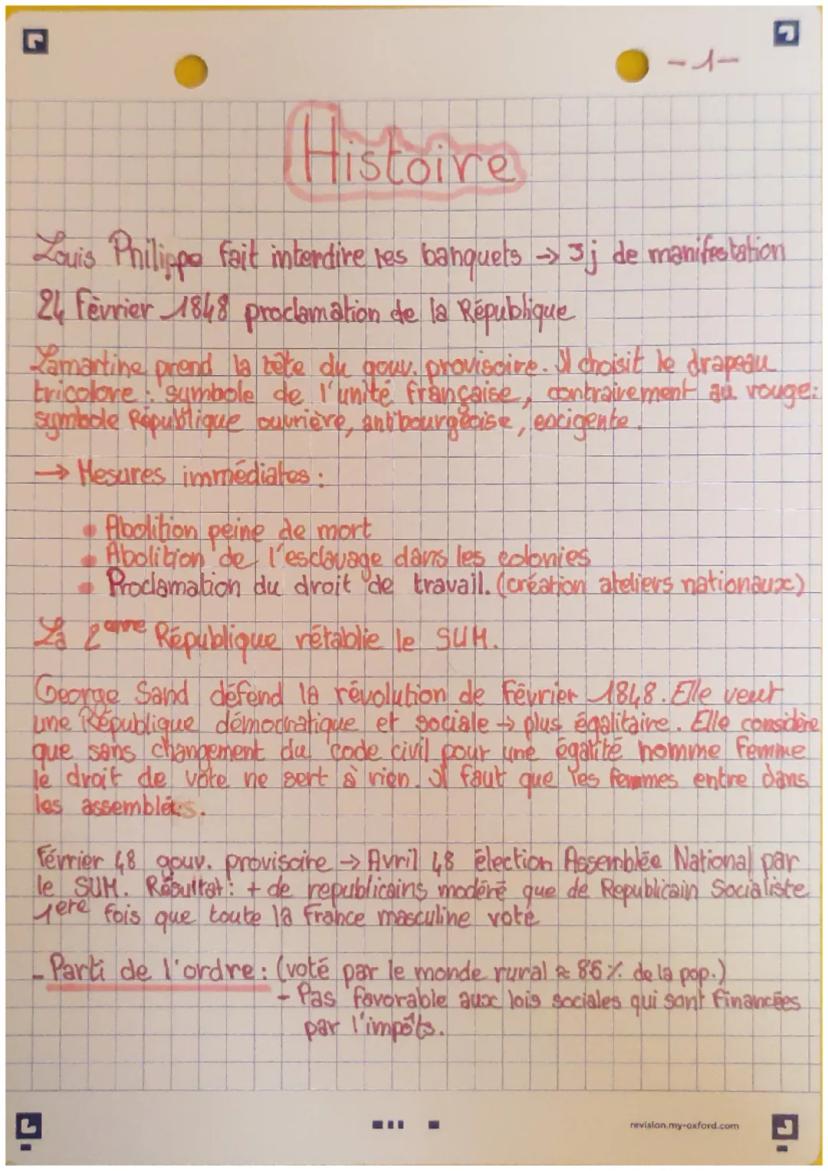 -1-
Histoire
Louis Philippe fait interdire les banquets → 3j de manifestation
24 Février 1848 proclamation de la République
Lamartine prend la tête du gouv. provisoire. Il choisit le drapeau
tricolore : symbole de l'unité française, contrairement au rouge:
symbole République ouvrière, antibourgeoise, exigente.
→ Mesures immédiates :
• Abolition peine de mort
• Abolition de l'esclavage dans les colonies
• Proclamation du droit de travail. (création ateliers nationaux)
La 2ème République rétablie le SUM.
George Sand défend la révolution de Février 1848. Elle veut
une République démocratique et sociale → plus égalitaire. Elle considère
que sans changement du code civil pour une égalité homme femme
le droit de vote ne sert à rien. Il faut que les femmes entre dans
les assemblées.
Février 48 gouv. provisoire → Avril 48 élection Assemblée National par
le SUM. Résultat : + de republicains modéré que de Republicain Socialiste
1ere fois que toute la France masculine vote
- Parti de l'ordre : (voté par le monde rural ≈ 86% de la pop.)
- Pas favorable aux lois sociales qui sont financées
par l'impôts.
revision.my-oxford.com